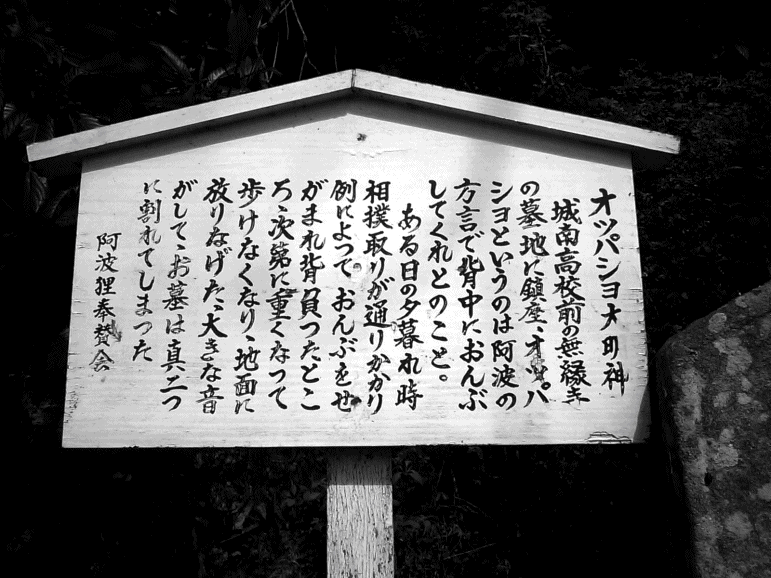 オツパシヨ大明神
城南高校前の無縁寺
の墓地に鎮座、オツパ
シヨというのは阿波の
方言で背中におんぶ
してくれとのこと。
ある日の夕暮れ時
相撲取りが通りかかり
例によつて。おんぶをせ
がまれ背負つたとこ
ろ、次第に重くなって
歩けなくなり、地面に
放りなげた、大きな音
がして、お墓は真二つ
に割れてしまつた
阿波狸奉賛会